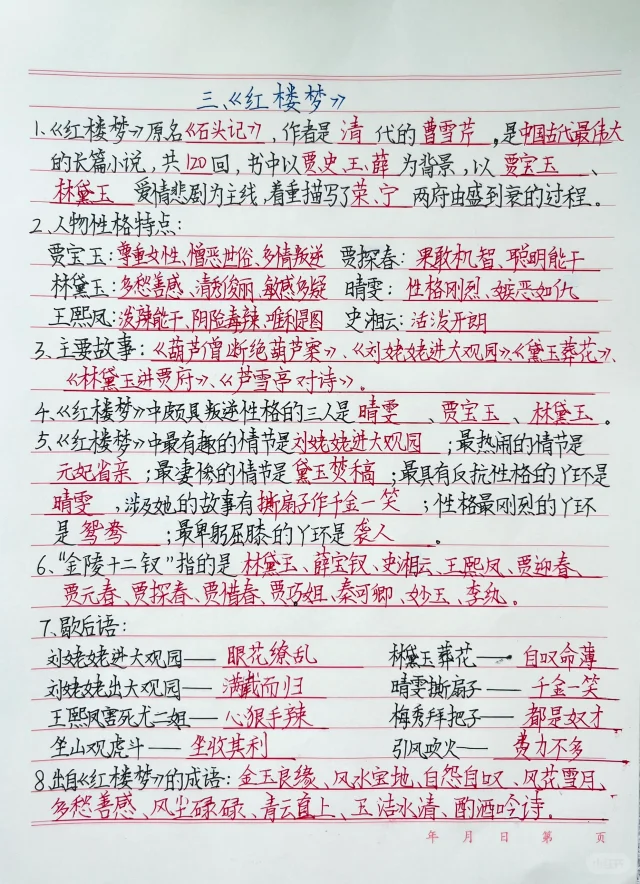 三、《红楼梦》
1、《红楼梦》原名《石头记》,作者是 清 代的 曹雪芹 ,是中国古代最伟大
的长篇小说,共120回,书中以贾、史、王、薛 为背景,以 贾宝玉 、
林黛玉 爱情悲剧为主线,着重描写了荣、宁 两府由盛到衰的过程。
2、人物性格特点:
贾宝玉:尊重女性、憎恶世俗、多情叛逆 贾探春: 果敢机智、聪明能干
林黛玉:多愁善感、清秀俊丽、敏感多疑 晴雯: 性格刚烈、嫉恶如仇
王熙凤:泼辣能干、阴险毒辣、唯利是图 史湘云:活泼开朗
3、主要故事:《葫芦僧断绝葫芦案》、《刘姥姥进大观园》、《黛玉葬花》、
《林黛玉进贾府》、《芦雪亭对诗》。
4、《红楼梦》中颇具叛逆性格的三人是 晴雯 、贾宝玉 、林黛玉 。
5、《红楼梦》中最有趣的情节是刘姥姥进大观园 ;最热闹的情节是
元妃省亲 ;最凄惨的情节是 黛玉焚稿 ;最具有反抗性格的丫环是
晴雯 ,涉及她的故事有撕扇子作千金一笑 ;性格最刚烈的丫环
是 鸳鸯 ;最卑躬屈膝的丫环是 袭人 。
6、“金陵十二钗”指的是 林黛玉、薛宝钗、史湘云、王熙凤、贾迎春、
贾元春、贾探春、贾惜春、贾巧姐、秦可卿、妙玉、李纨。
7、歇后语:
刘姥姥进大观园—— 眼花缭乱 林黛玉葬花—— 自叹命薄
刘姥姥出大观园—— 满载而归 晴雯撕扇子—— 千金一笑
王熙凤害死尤二姐—— 心狠手辣 梅秀拜把子—— 都是奴才
坐山观虎斗—— 坐收其利 引风吹火—— 费力不多
8、出自《红楼梦》的成语:金玉良缘、风水宝地、自怨自叹、风花雪月、
多愁善感、风尘碌碌、青云直上、玉洁冰清、酌酒吟诗。
年 月 日 第 页